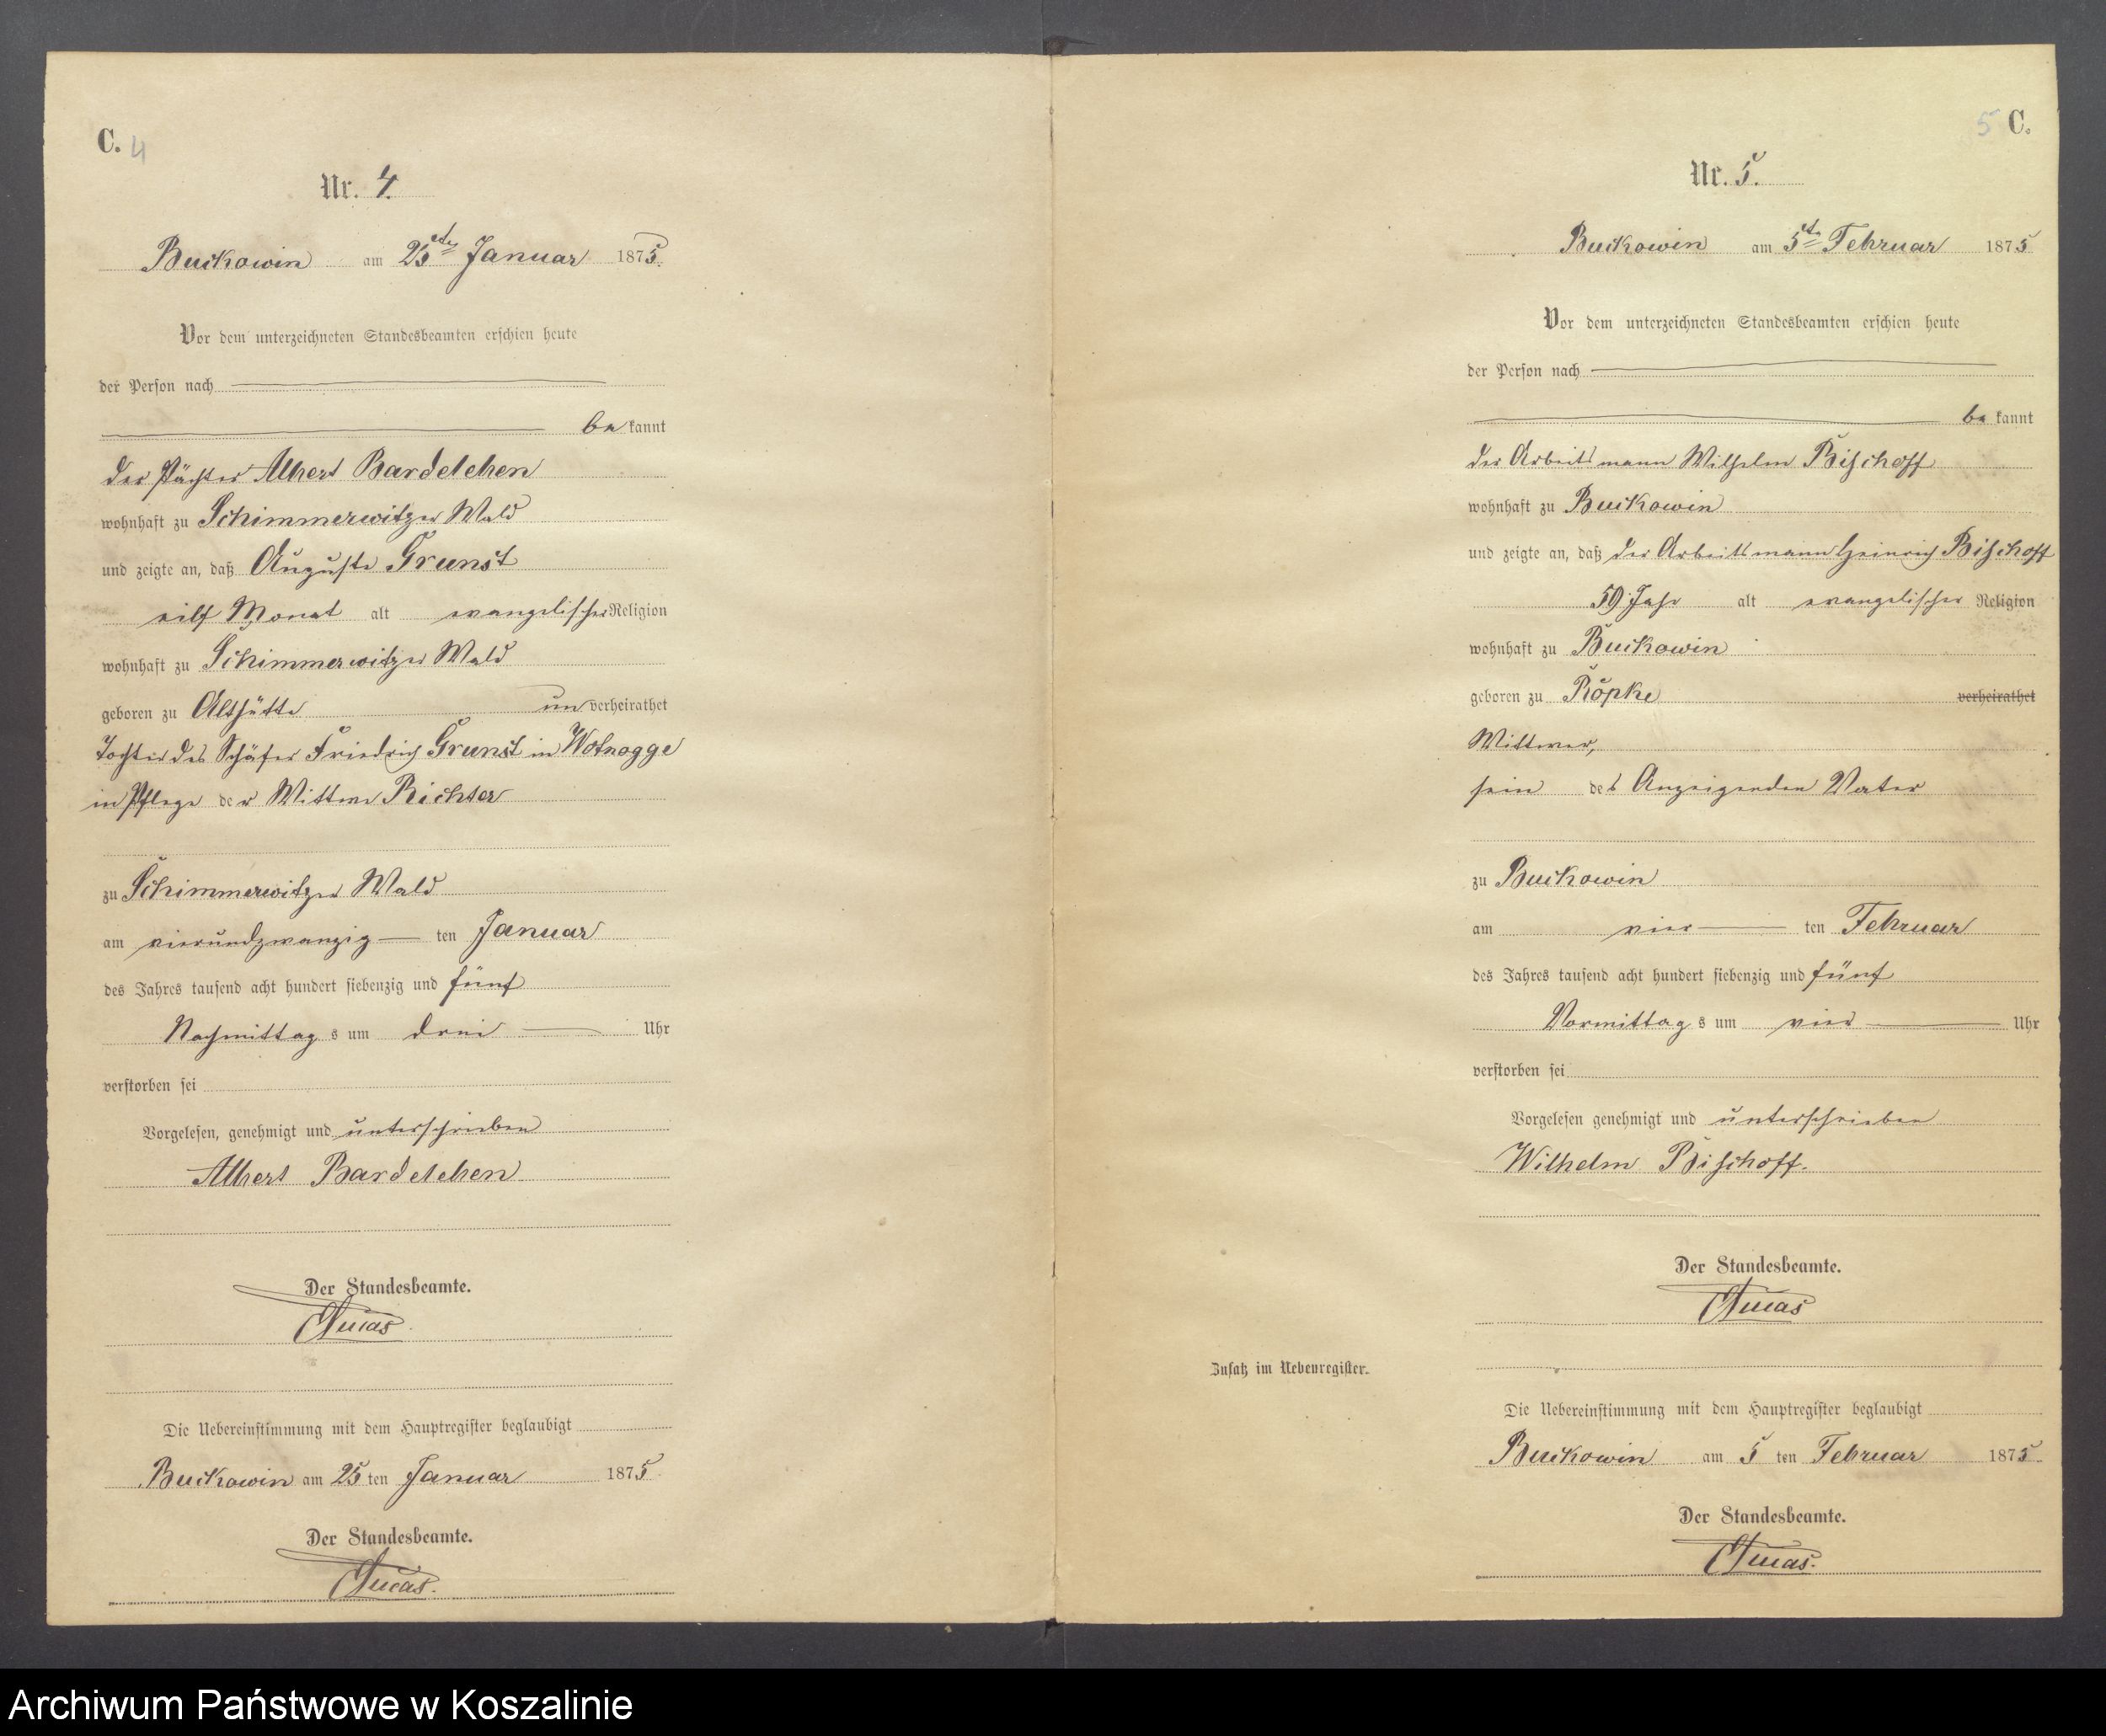 C. 4
Nr. 4.
Buckowin am 25ten Januar 1875.
Vor dem unterzeichneten Standesbeamten erschien heute
der Person nach
be kannt
der Pächter Albert Bardeleben
wohnhaft zu Schimmerwitzer Wald
und zeigte an, daß Auguste Grunst
eilf Monat alt evangelischer Religion
wohnhaft zu Schimmerwitzer Wald
geboren zu Althütte un verheirathet
Tochter des Schäfer Friedrich Grunst in Wotnogge
in Pflege der Wittwe Richter
zu Schimmerwitzer Wald
am vierundzwanzig ten Januar
des Jahres tausend acht hundert siebenzig und fünf
Nachmittag s um drei Uhr
verstorben sei
Vorgelesen, genehmigt und unterschrieben
Albert Bardeleben
Der Standesbeamte.
Lucas.
Die Uebereinstimmung mit dem Hauptregister beglaubigt
Buckowin am 25 ten Januar 1875.
Der Standesbeamte.
Lucas.
5 C.
Nr. 5.
Buckowin am 5te Februar 1875
Vor dem unterzeichneten Standesbeamten erschien heute
der Person nach
be kannt
der Arbeitsmann Wilhelm Bischoff
wohnhaft zu Buckowin
und zeigte an, daß der Arbeitsmann Heinrich Bischoff
59 Jahr alt evangelischer Religion
wohnhaft zu Buckowin
geboren zu Röpke verheirathet
Wittwer,
sein des Anzeigenden Vater
zu Buckowin
am vier ten Februar
des Jahres tausend acht hundert siebenzig und fünf
Vormittag s um vier Uhr
verstorben sei
Vorgelesen genehmigt und unterschrieben
Wilhelm Bischoff.
Der Standesbeamte.
Lucas
Zusatz im Nebenregister.
Die Uebereinstimmung mit dem Hauptregister beglaubigt
Buckowin am 5 ten Februar 1875.
Der Standesbeamte.
Lucas.
Archiwum Państwowe w Koszalinie